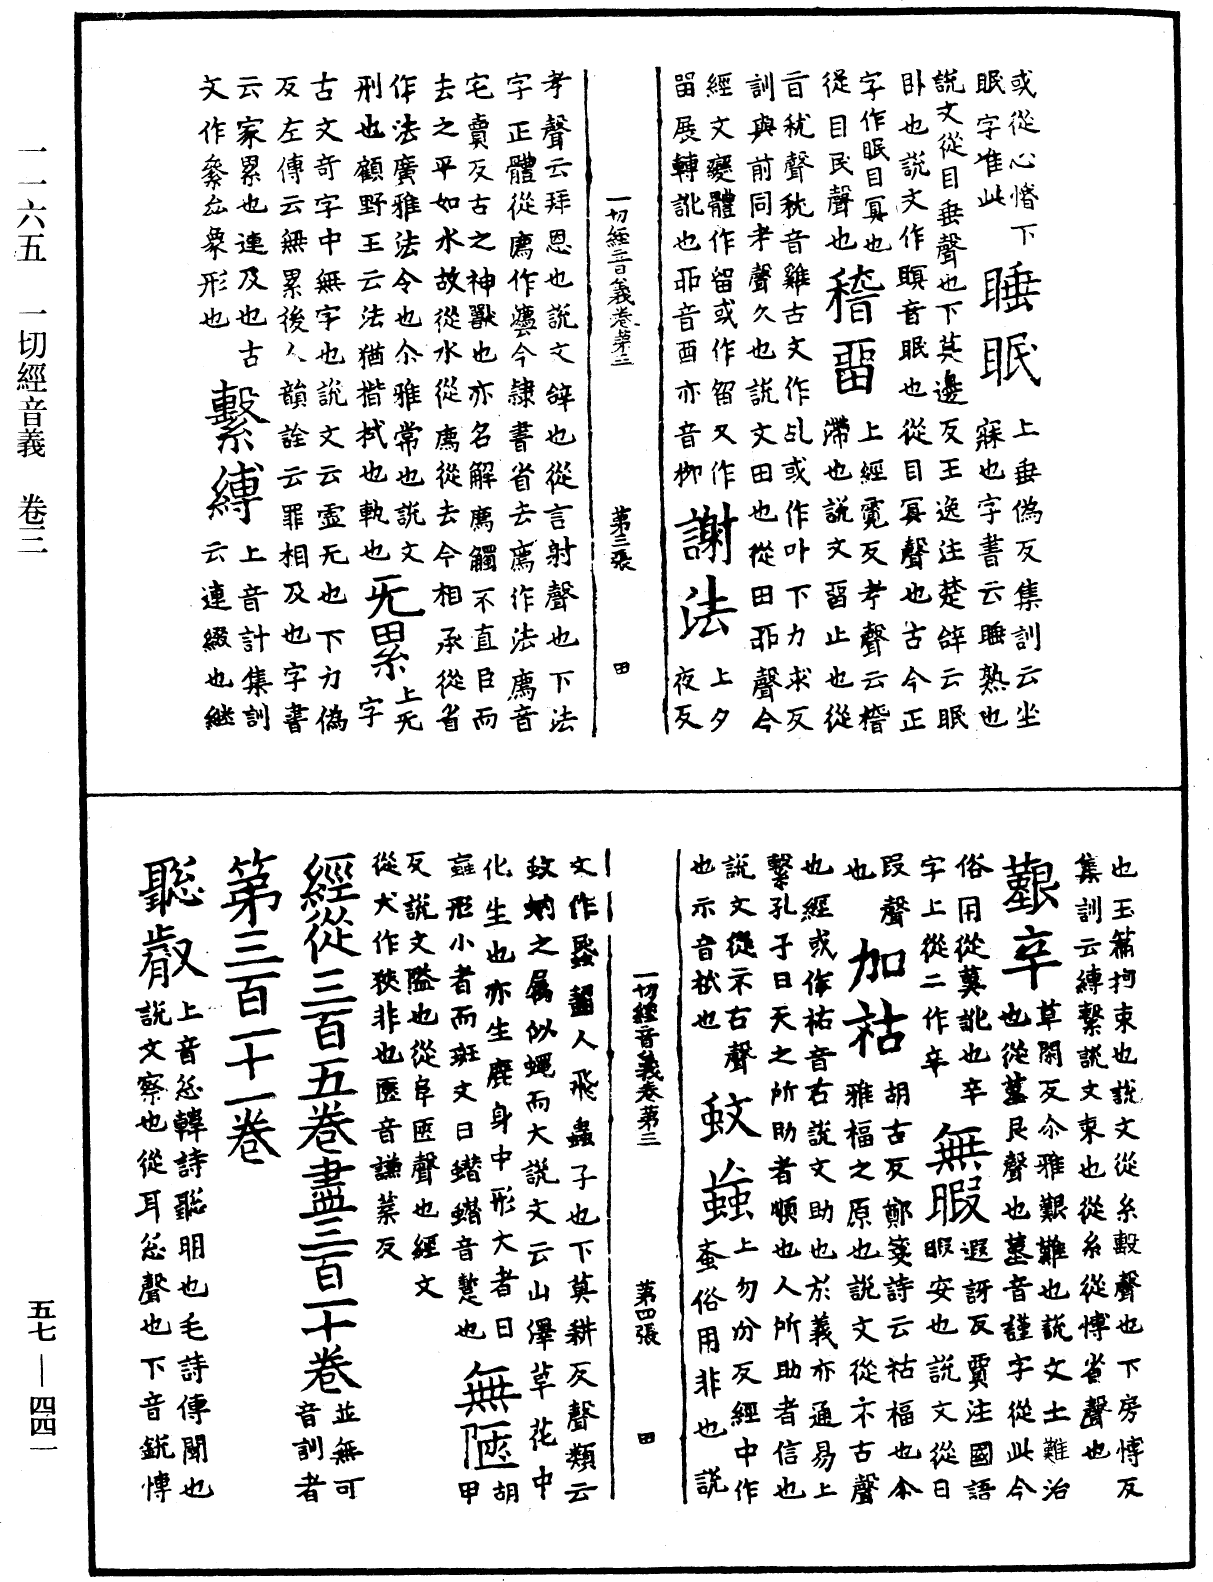 一一六五　一切經音義　卷三
或從心惛下
眠字准此
睡眠
上垂偽反集訓云坐
寐也字書云睡熟也
說文從目垂聲也下莫邊反王逸注楚辭云眠
卧也說文作瞑音眠也從目冥聲也古今正
字作眠目冥也
從目民聲也
稽留
上經霓反考聲云稽
滯也說文留止也從
旨𥝌聲𥝌音雞古文作乩或作卟下力求反
訓與前同考聲久也說文田也從田丣聲今
經文變體作留或作畱又作
㽞展轉訛也丣音酉亦音柳
謝法
上夕
夜反
一切經音義卷第三　第三張　田
考聲云拜恩也說文辝也從言射聲也下法
字正體從廌作灋今隷書省去廌作法廌音
宅賣反古之神獸也亦名解廌觸不直臣而
去之平如水故從水從廌從去今相承從省
作法廣雅法令也尒雅常也說文
刑也顧野王云法猶揩栻也軌也
无累
上无
字
古文竒字中無字也說文云虛无也下力偽
反左傳云無累後人韻詮云罪相及也字書
云家累也連及也古
文作絫厽象形也
繫縛
上音計集訓
云連綴也継
也玉篇拘束也說文從糸毄聲也下房愽反
集訓云縛繫說文束也從糸從愽省聲也
艱辛
草閑反尒雅艱難也說文土難治
也從堇艮聲也堇音謹字從此今
俗用從莫訛也辛
字上從二作辛
無暇
遐訝反賈注國語
暇安也說文從日
叚聲
也
加祜
胡古反鄭箋詩云祜福也尒
雅福之原也說文從示古聲
也經或作祐音右說文助也於義亦通易上
繫孔子曰天之所助者順也人所助者信也
說文從示右聲
也示音衹也
蚊䖟
上勿份反經中作
蚉俗用非也說
一切經音義卷第三　第四張　田
文作𧓹齧人飛蟲子也下莫耕反聲類云
蚊蚋之屬似蠅而大說文云山澤草花中
化生也亦生鹿身中形大者曰
䖟形小者而斑文曰蠶蠶音蹔也
無陿
胡
甲
反說文隘也從阜匧聲也經文
從犬作狹非也匧音謙葉反
經從三百五卷盡三百一十卷
並無可
音訓者
第三百一十一卷
聦叡
上音怱韓詩聦明也毛詩傳聞也
說文察也從耳怱聲也下音銳愽
五七—四四一